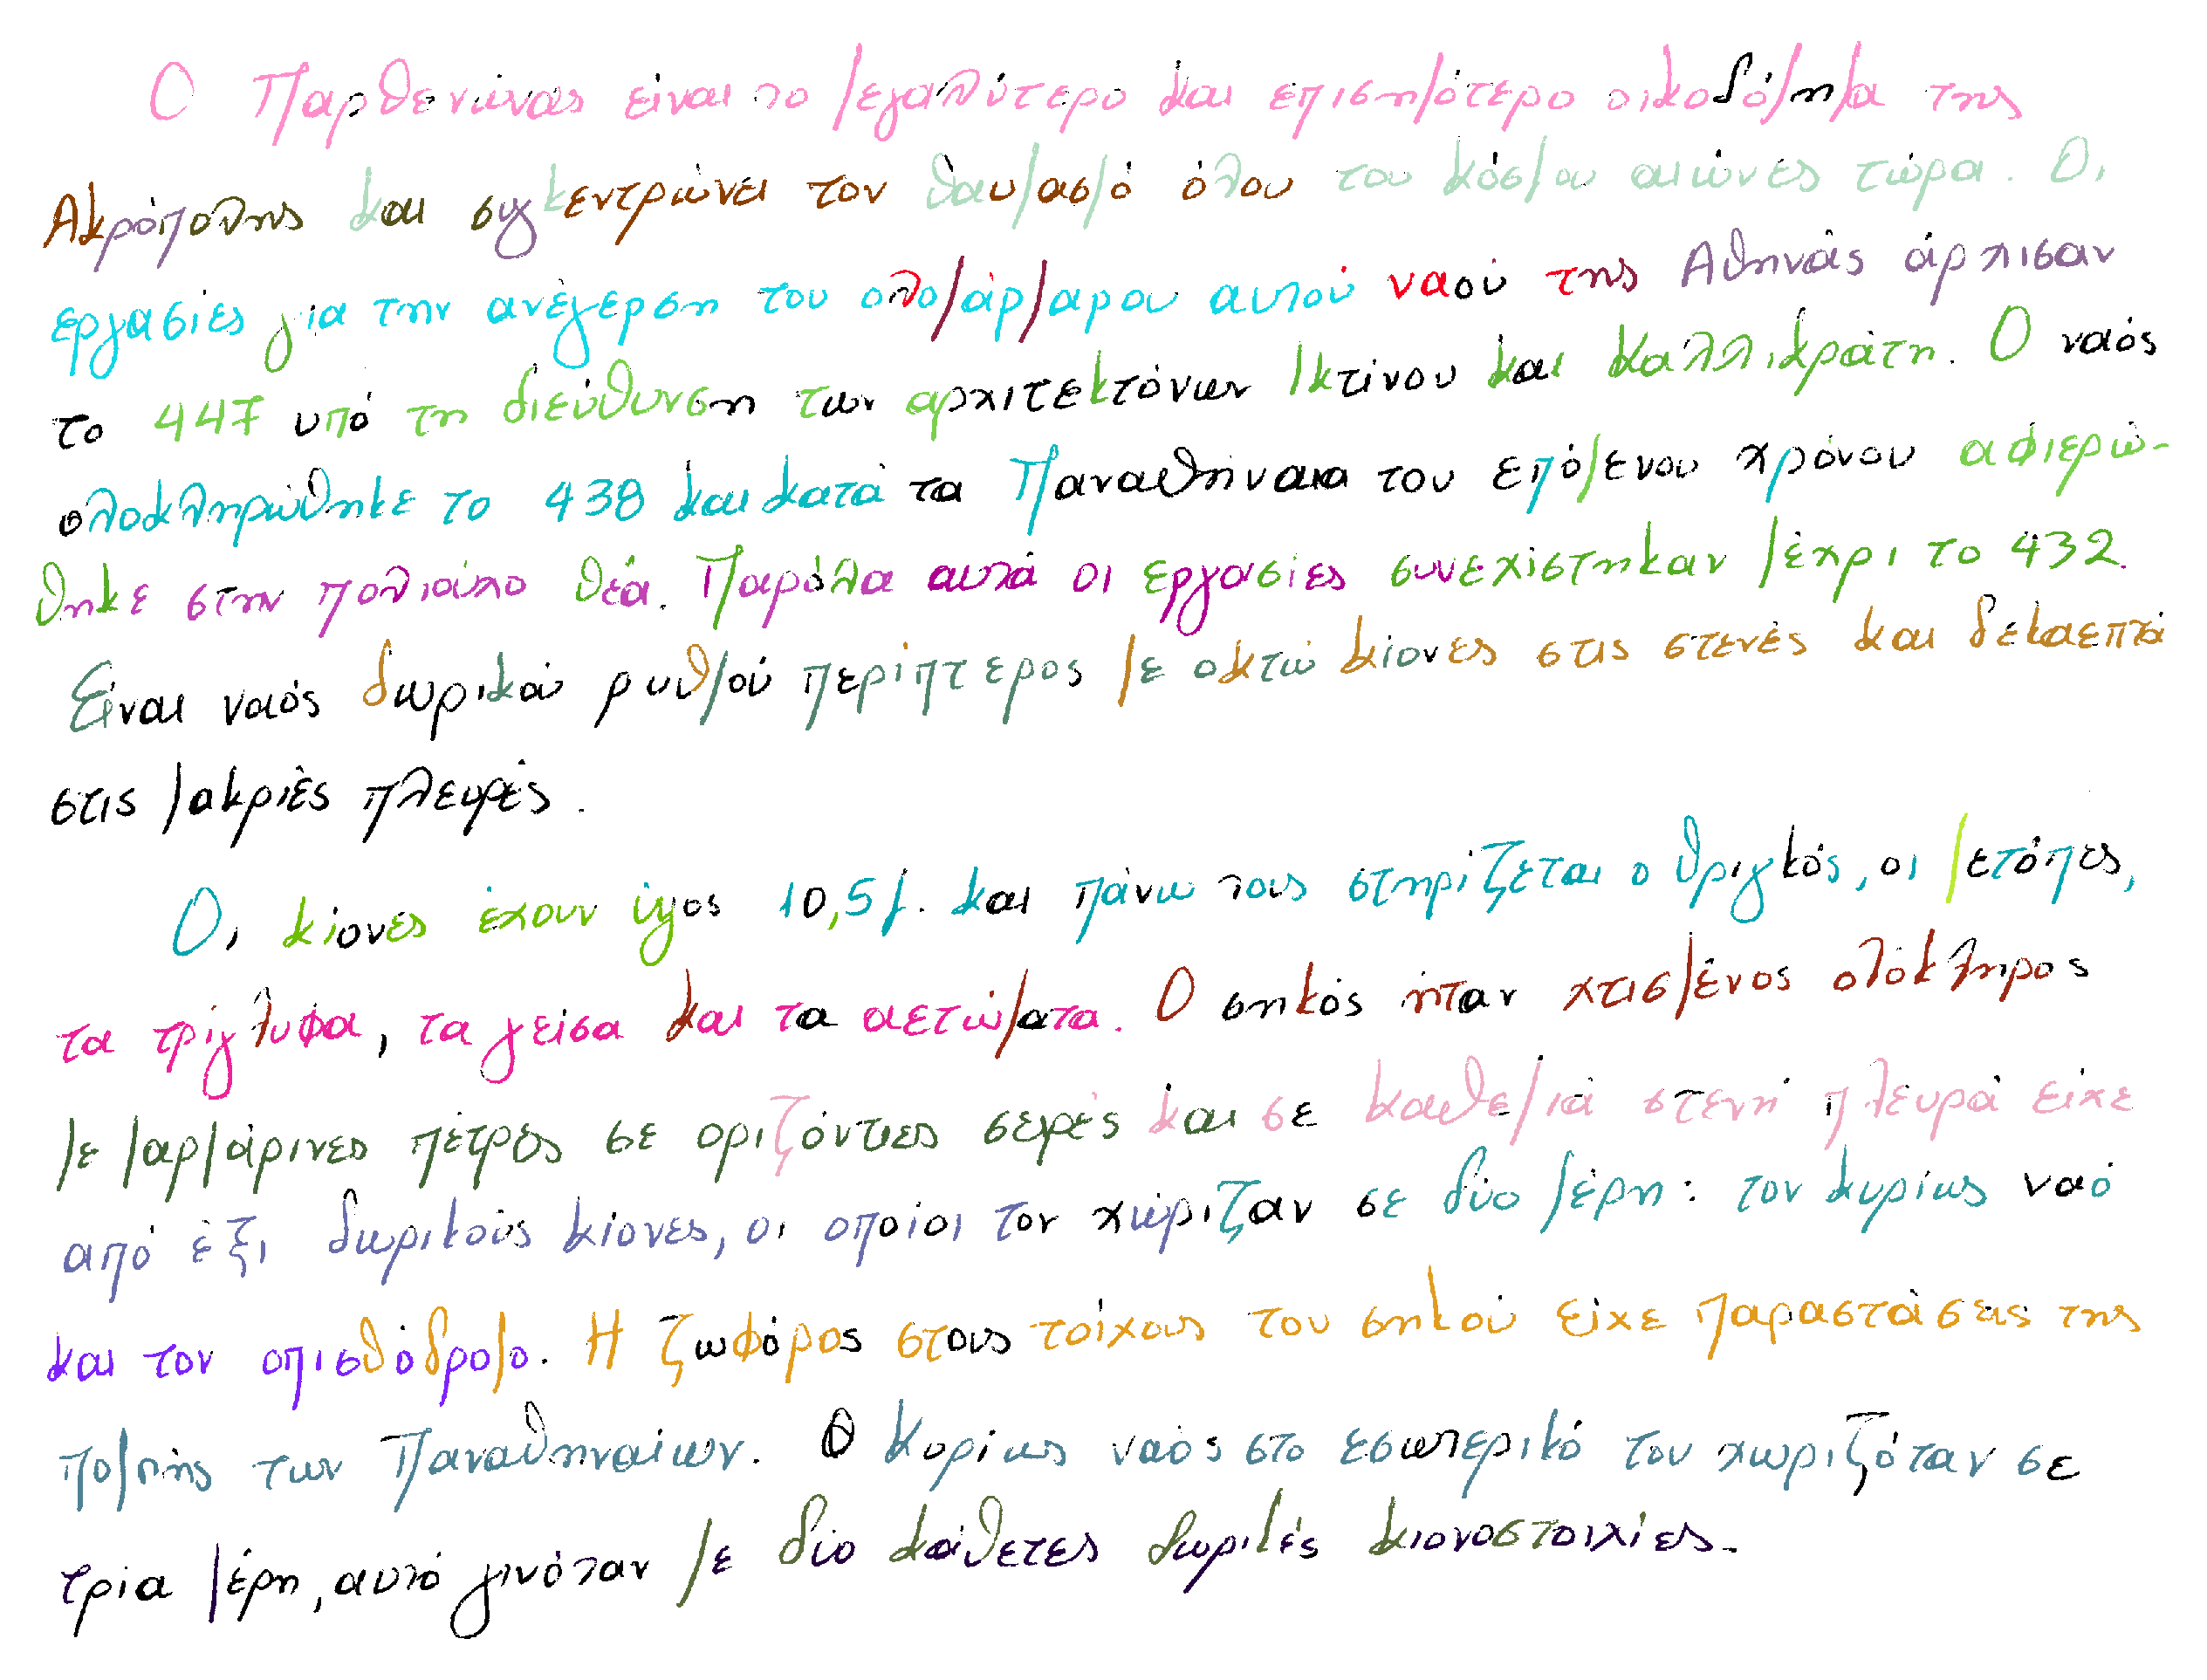 Ο Παρθενώνας είναι το μεγαλύτερο και επισημότερο οικοδόμημα της
Ακρόπολης και συγκεντρώνει τον θαυμασμό όλου του κόσμου αιώνες τώρα. Οι
εργασίες για την ανέγερση του ολομάρμαρου αυτού ναού της Αθηνάς άρχισαν
το 447 υπό τη διεύθυνση των αρχιτεκτόνων Ικτίνου και Καλλικράτη. Ο ναός
ολοκληρώθηκε το 438 και κατά τα Παναθήναια του επόμενου χρόνου αφιερώ-
θηκε στην πολιούχο θεά. Παρόλα αυτά οι εργασίες συνεχίστηκαν μέχρι το 432.
Είναι ναός δωρικού ρυθμού περίπτερος με οκτώ κίονες στις στενές και δεκαεπτά
στις μακριές πλευρές.
Οι κίονες έχουν ύψος 10,5 μ. και πάνω τους στηρίζεται ο θριγκός, οι μετόπες,
τα τρίγλυφα, τα γείσα και τα αετώματα. Ο σηκός ήταν χτισμένος ολόκληρος
με μαρμάρινες πέτρες σε οριζόντιες σειρές και σε καθεμιά στενή πλευρά είχε
από έξι δωρικούς κίονες, οι οποίοι τον χώριζαν σε δύο μέρη: τον κυρίως ναό
και τον οπισθόδρομο. Η ζωφόρος στους τοίχους του σηκού είχε παραστάσεις της
πομπής των Παναθηναίων. Ο κυρίως ναός στο εσωτερικό του χωριζόταν σε
τρία μέρη, αυτό γινόταν με δύο κάθετες δωρικές κιονοστοιχίες.